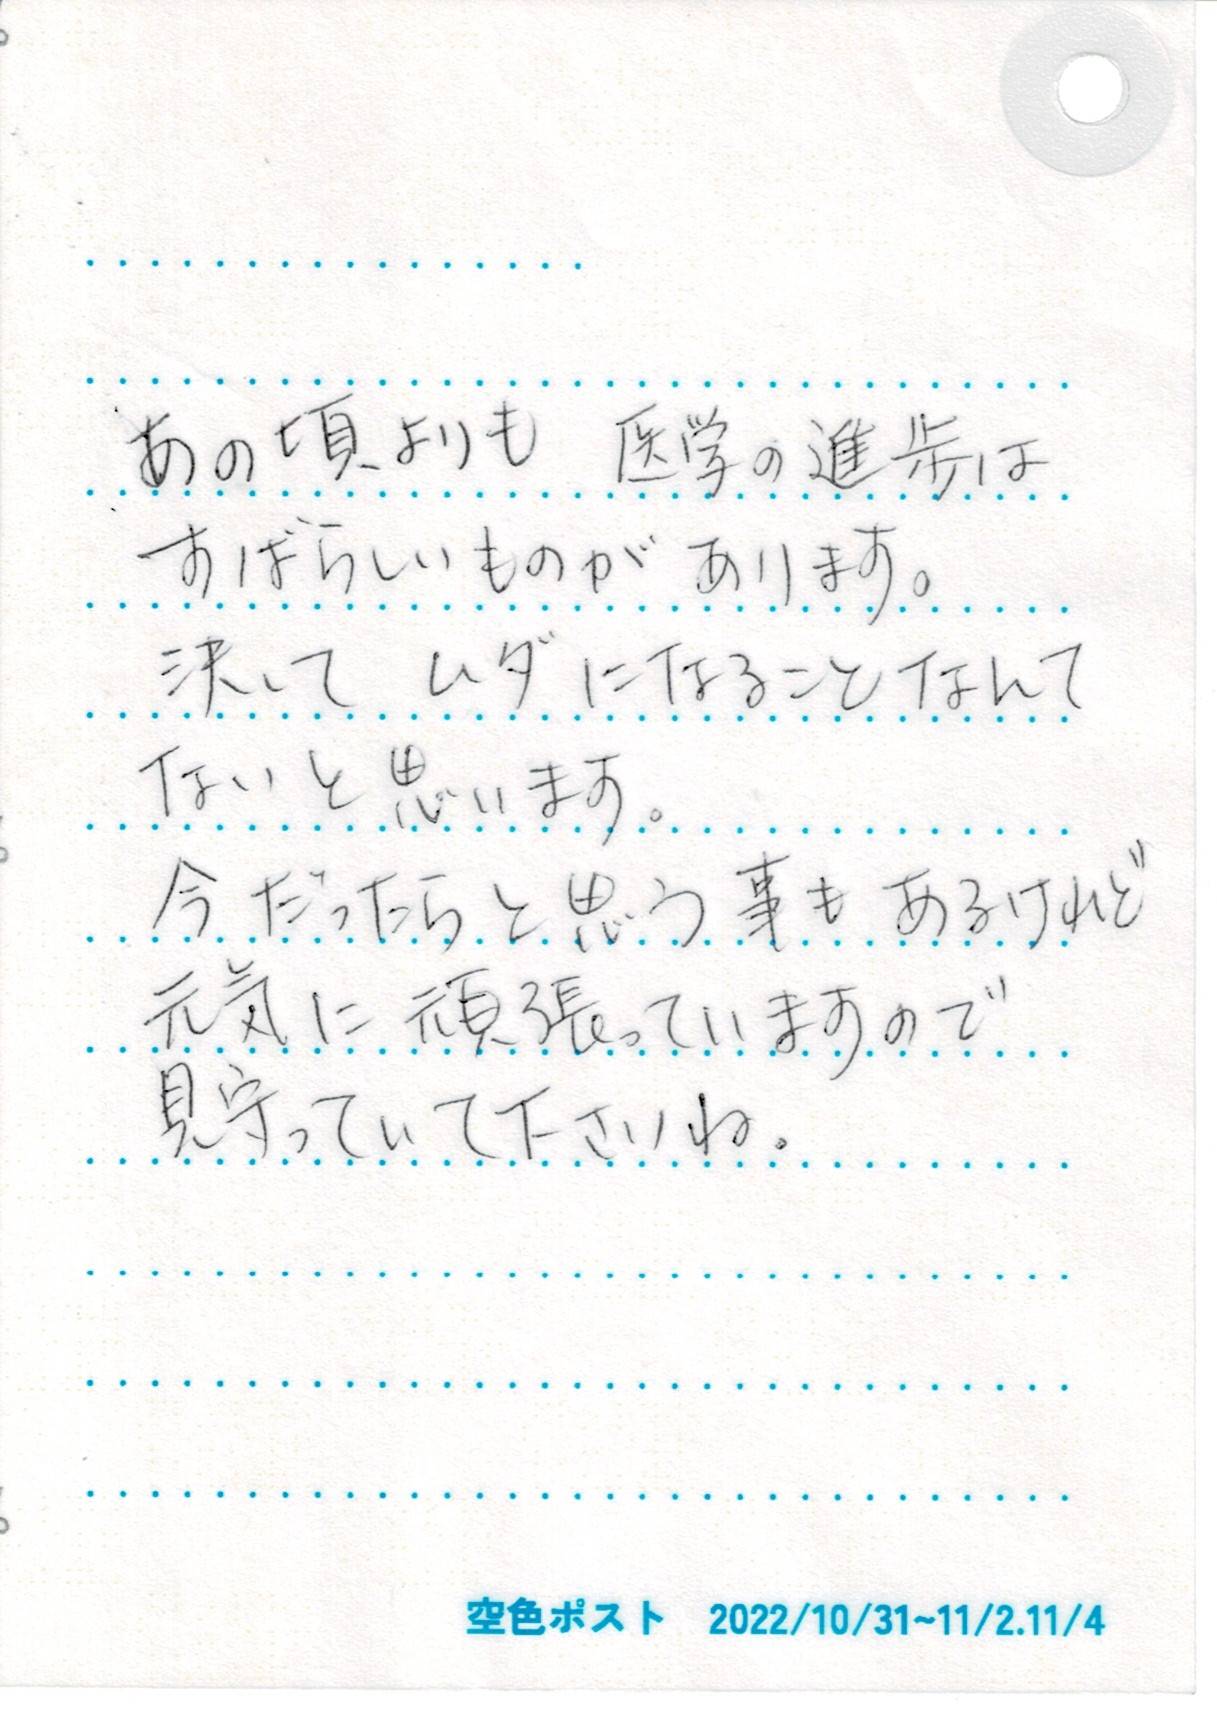 あの頃よりも 医学の進歩は
すばらしいものが あります。
決して ムダになることなんて
ないと思います。
今だったらと思う事もあるけれど
元気に頑張っていますので
見守っていて下さいね。
空色ポスト 2022/10/31~11/2.11/4